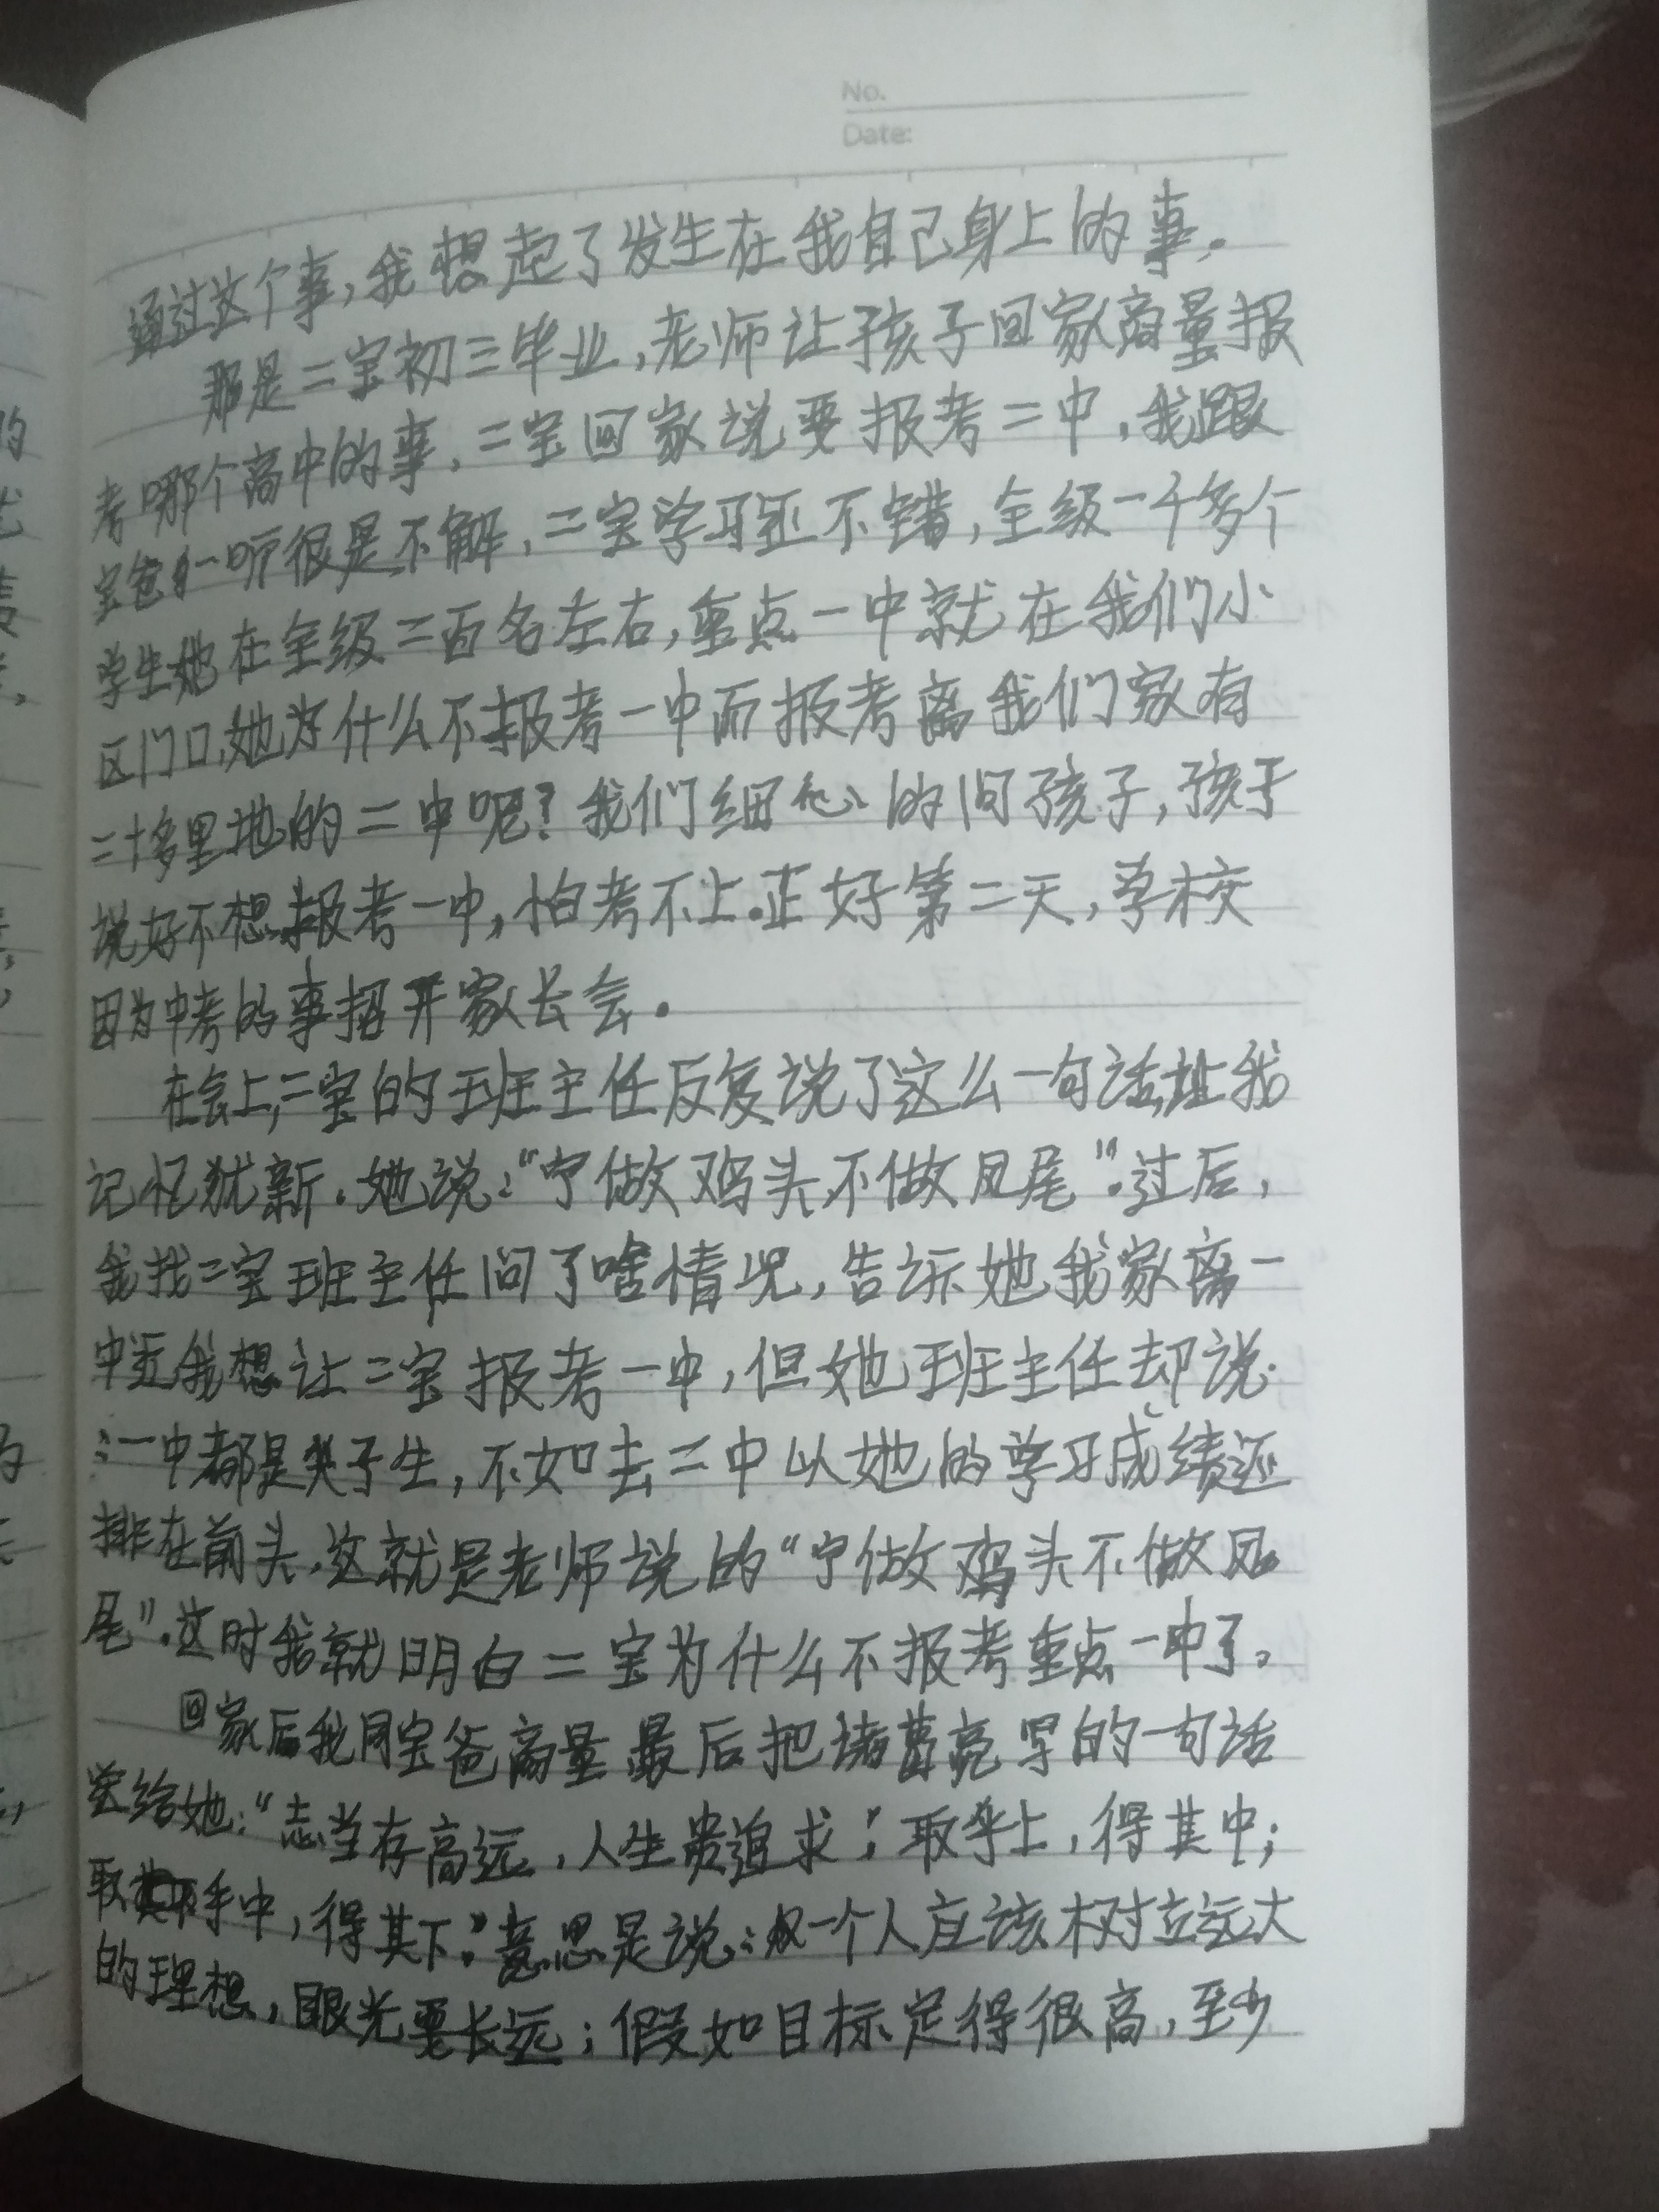 No.
Date:
通过这个事,我想起了发生在我自己身上的事。
那是二宝初三毕业,老师让孩子回家商量报
考哪个高中的事,二宝回家说要报考二中,我跟
宝爸一听很是不解,二宝学习还不错,全级一千多个
学生她在全级二百名左右,重点一中就在我们小
区门口,她为什么不报考一中而报考离我们家有
二十多里地的二中呢?我们细心的问孩子,孩子
说好不想报考一中,怕考不上.正好第二天,学校
因为中考的事招开家长会.
在会上,二宝的班主任反复说了这么一句话,让我
记忆犹新.她说:“宁做鸡头,不做凤尾”.过后,
我找二宝班主任问了啥情况,告诉她我家离一
中近我想让二宝报考一中,但她班主任却说
:一中都是尖子生,不如去二中以她的学习成绩还
排在前头,这就是老师说的“宁做鸡头不做凤
尾”.这时我就明白二宝为什么不报考重点一中了。
回家后我同宝爸商量最后把诸葛亮写的一句话
送给她:“志当存高远,人生贵追求;取乎上,得其中;
取乎中,得其下.”意思是说:一个人应该树立远大
的理想,眼光要长远;假如目标定得很高,至少